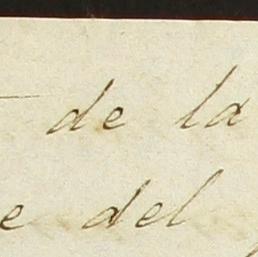 de la
e del